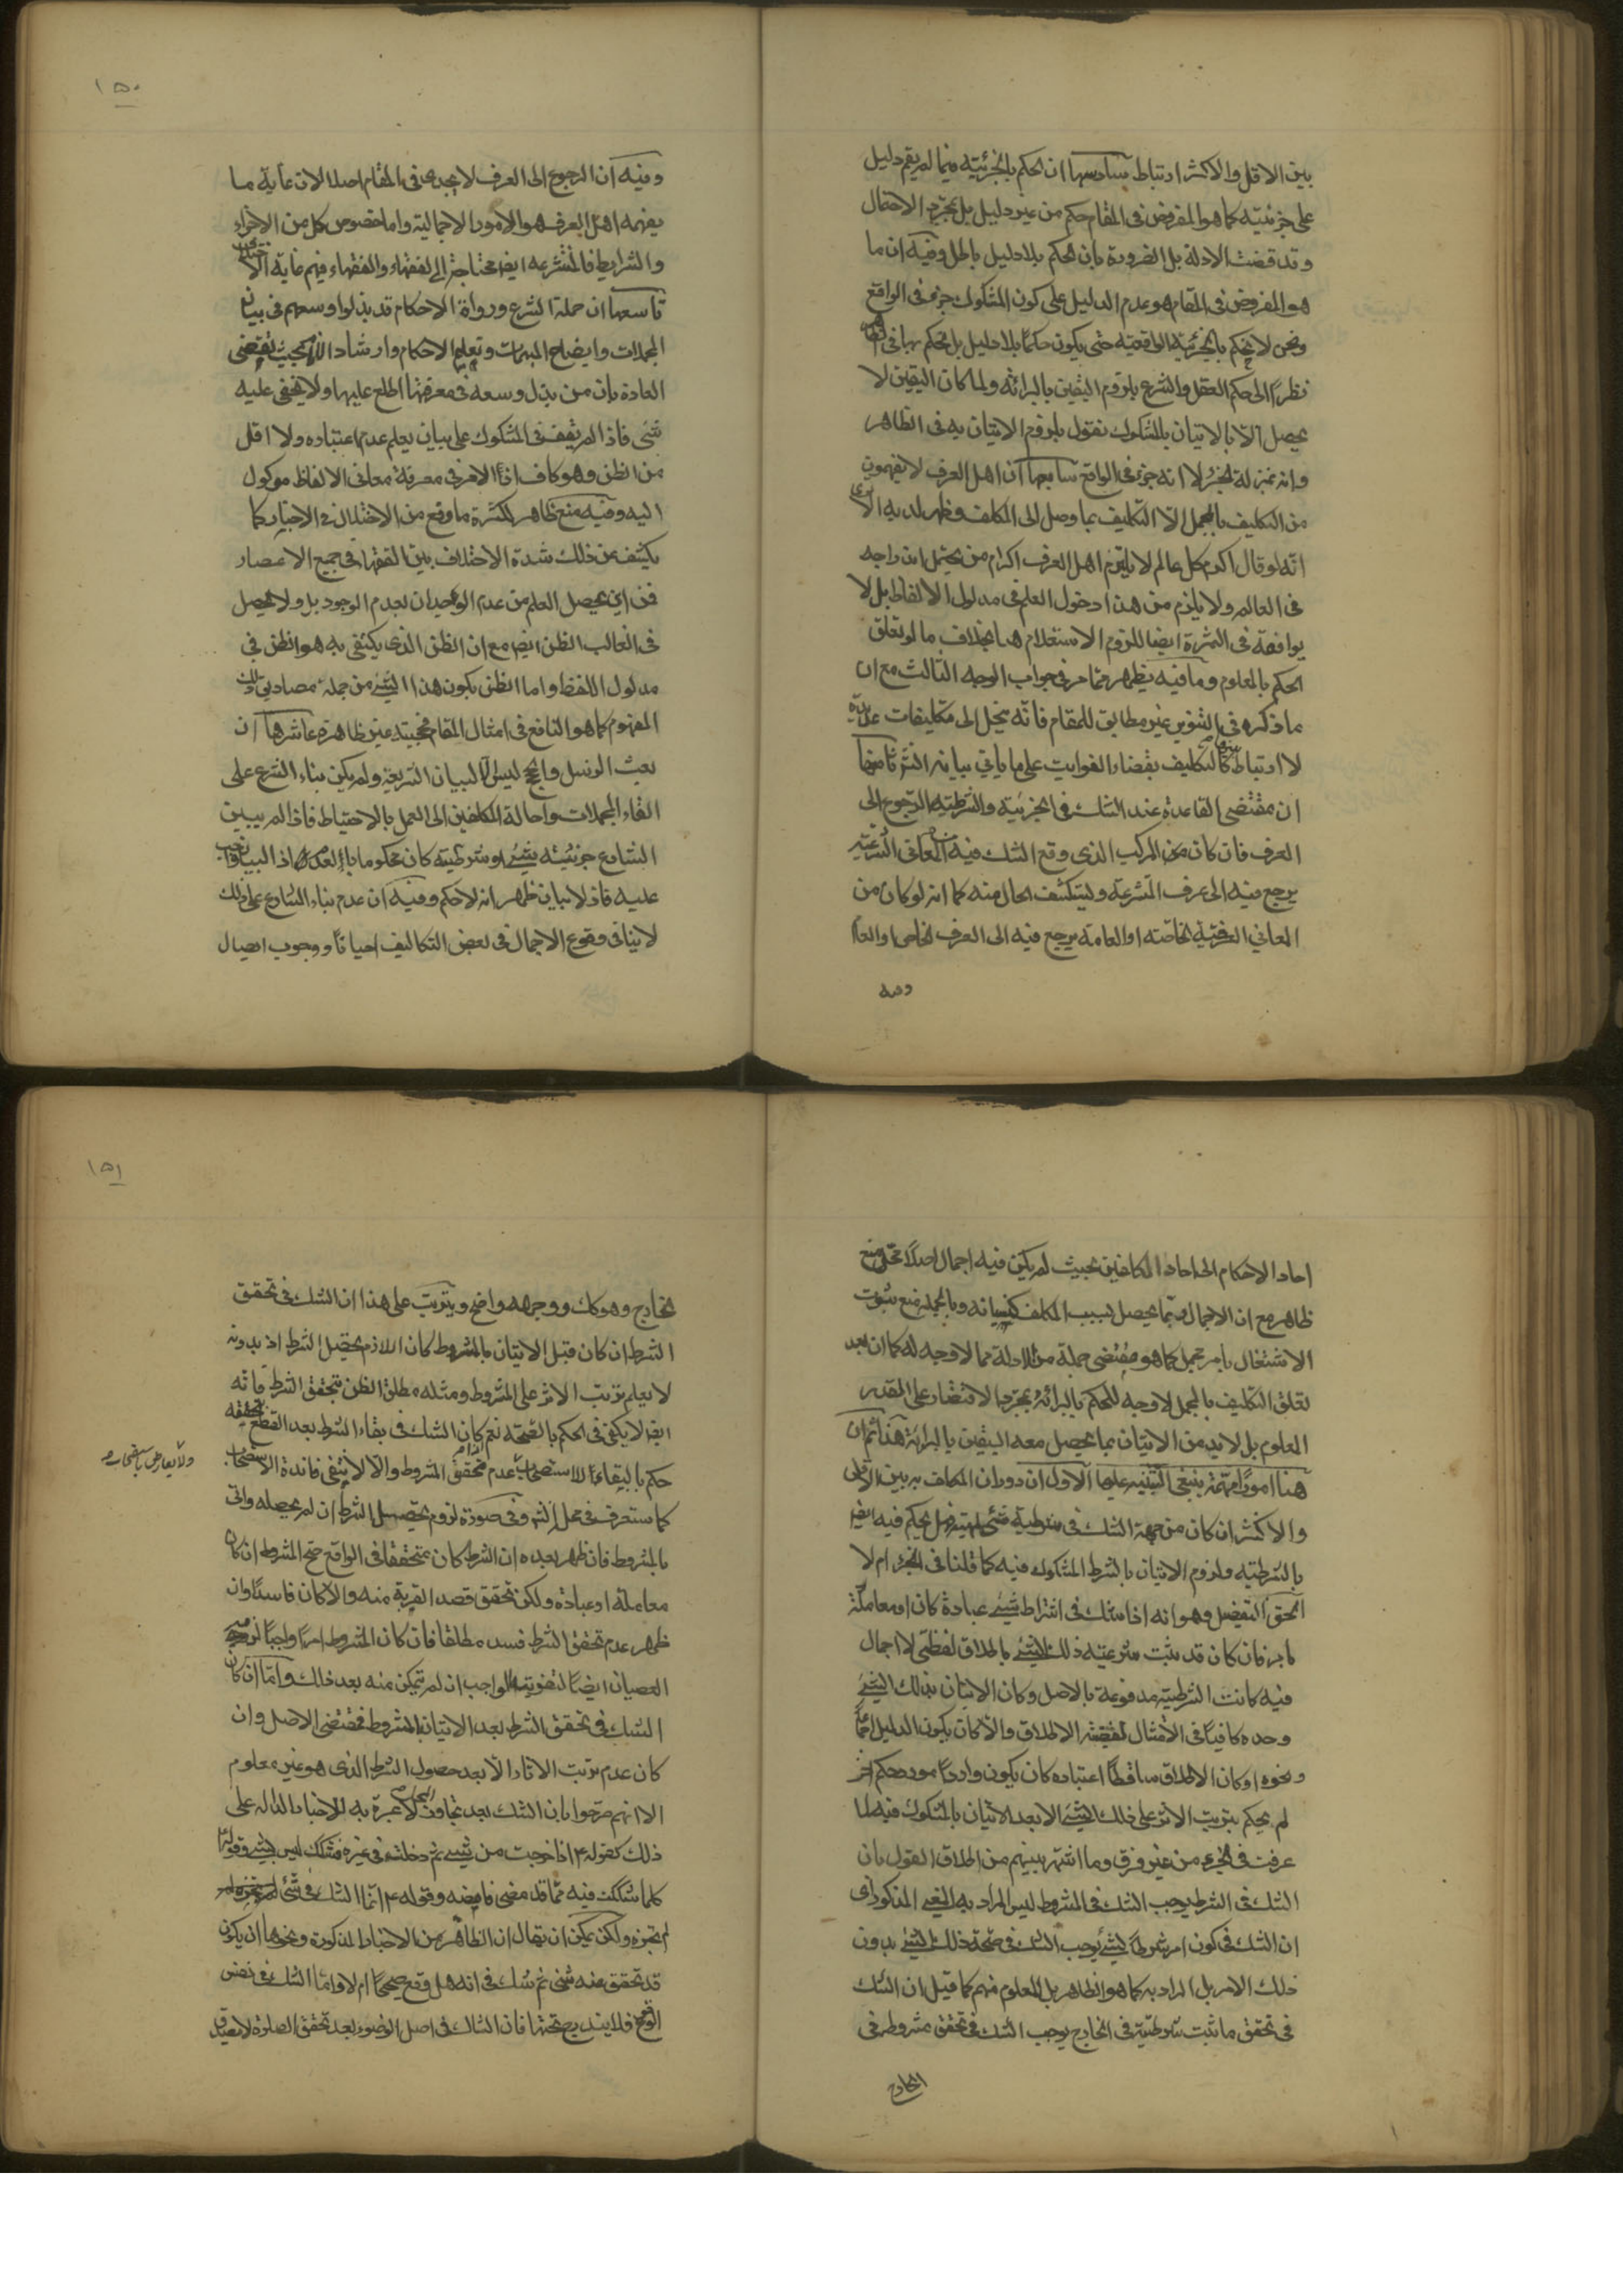 بين الاقل والاكثر ارتباط سادسها ان الحكم بالجزئية فيما لم يقم دليل
على جزئيته كما هو المفروض فى المقام حكم من غير دليل بل بمجرد الاحتمال
وقد قضت الادلة بل الضرورة بان الحكم بلا دليل باطل وفيه ان ما
هو المفروض فى المقام هو عدم الدليل على كون المشكوك جزء فى الواقع
ونحن لا نحكم بالجزئية الواقعية حتى يكون حكما بلا دليل بل نحكم بها فى الظاهر
نظرا الى حكم العقل والشرع بلزوم اليقين بالبرائة ولما كان اليقين لا
يحصل الا بالاتيان بالمشكوك نقول بلزوم الاتيان به فى الظاهر
وانه بمنزلة الجزء لا انه جزء فى الواقع سابعها ان اهل العرف لا يفهمون
من التكليف بالمجمل الا التكليف بما وصل الى المكلف وظهر لديه الا ترى
انه لو قال اكرم كل عالم لا يلتزم اهل العرف اكرام من يحتمل اندراجه
فى العالم ولا يلزم من هذا دخول العلم فى مدلول الالفاظ بل لا
يوافقه فى الثمرة ايضا للزوم الاستعلام هنا بخلاف ما لو تعلق
الحكم بالمعلوم وما فيه يظهر مما مر فى جواب الوجه الثالث مع ان
ما ذكره فى التنوير غير مطابق للمقام فانه ينحل الى تكليفات عديدة
لا ارتباط بينها كالتكليف بقضاء الفوايت على ما ياتى بيانه انش ثامنها
ان مقتضى القاعدة عند الشك فى الجزئية والشرطية الرجوع الى
العرف فان كان من المركب الذى وقع الشك فيه من المعانى الشرعية
يرجع فيه الى عرف المتشرعة ويستكشف الحال منه كما انه لو كان من
المعانى العرفية الخاصة او العامة يرجع فيه الى العرف الخاص او العام
وفيه
١٥٠
وفيه ان الرجوع الى العرف لا يجدى فى المقام اصلا لان غاية ما
يفهمه اهل العرف هو الامور الاجمالية واما خصوص كل من الاجزاء
والشرايط فالمتشرعه ايضا محتاجة الى الفقهاء والفقهاء فيهم غاية الاختلاف
تاسعها ان حملة الشرع ورواة الاحكام قد بذلوا وسعهم فى بيان
المجملات وايضاح المبهمات وتعليم الاحكام وارشاد الانام بحيث تقتضى
العادة بان من بذل وسعه فى معرفتها اطلع عليها ولا يخفى عليه
شئ فاذا لم نقف فى المشكوك على بيان يعلم عدم اعتباره ولا اقل
من الظن وهو كاف اذ الامر فى معرفة معانى الالفاظ موكول
اليه وفيه منع ظاهر لكثرة ما وقع من الاختلال فى الاخبار كما
يكشف عن ذلك شدة الاختلاف بين الفقهاء فى جميع الاعصار
فمن اين يحصل العلم من عدم الوجدان بعدم الوجود بل ولا يحصل
فى الغالب الظن ايضا مع ان الظن الذى يكتفى به هو الظن فى
مدلول اللفظ واما الظن بكون هذا الشئ من جملة مصاديق ذلك
المفهوم كما هو النافع فى امثال المقام فحجيته غير ظاهرة عاشرها ان
بعث الرسل والحجج ليس الا لبيان الشريعة ولم يكن بناء الشرع على
القاء المجملات واحالة المكلفين الى العمل بالاحتياط فاذا لم يبين
الشارع جزئية شئ او شرطيته كان محكوما بالعدم اذ البيان واجب
عليه فاذ لا بيان ظهر انه لا حكم وفيه ان عدم بناء الشارع على ذلك
لا ينافى وقوع الاجمال فى بعض التكاليف احيانا ووجوب ايصال
احاد الاحكام الى احاد المكلفين بحيث لم يكن فيه اجمال اصلا محل منع
ظاهر مع ان الاجمال ربما يحصل بسبب المكلف كنسيانه وبالجملة منع ثبوت
الاشتغال بامر مجمل كما هو مقتضى جملة من الادلة مما لا وجه له كما ان بعد
تعلق التكليف بالمجمل لا وجه للحكم بالبرائة بمجرد الاقتصار على المقدر
المعلوم بل لا بد من الاتيان بما يحصل معه اليقين بالبرائة هذا ثم ان
هنا امورا مهمة ينبغى التنبيه عليها الاول ان دوران المكلف به بين الاقل
والاكثر ان كان من جهة الشك فى شرطية شئ لشئ فهل يحكم فيه ايضا
بالشرطية ولزوم الاتيان بالشرط المشكوك فيه كما قلنا فى الجزء ام لا
الحق التفصيل وهو انه اذا شك فى اشتراط شئ عبادة كان او معاملة
بامر فان كان قد ثبت شرعية ذلك الشئ باطلاق لفظى لا اجمال
فيه كانت الشرطية مدفوعة بالاصل وكان الاتيان بذلك الشئ
وحده كافيا فى الامتثال لقضية الاطلاق والا كان يكون الدليل اجماعا
ونحوه او كان الاطلاق ساقطا اعتباره كان يكون واردا مورد حكم اخر
لم يحكم بترتب الاثر على ذلك الشئ الا بعد الاتيان بالمشكوك فيه لما
عرفت فى الجزء من غير فرق وما اشتهر بينهم من اطلاق القول بان
الشك فى الشرط يوجب الشك فى المشروط ليس المراد به المعنى المذكور اى
ان الشك فى كون امر شرطا لشئ يوجب الشك فى صحة ذلك الشئ بدون
ذلك الامر بل المراد به كما هو الظاهر بل المعلوم منهم كما قيل ان الشك
فى تحقق ما ثبت شرطيته فى الخارج يوجب الشك فى تحقق مشروطه فى
الخارج
١٥١
الخارج وهو كك ووجهه واضح ويترتب على هذا ان الشك فى تحقق
الشرط ان كان قبل الاتيان بالمشروط كان اللازم تحصيل الشرط اذ بدونه
لا يعلم ترتب الاثر على المشروط ومثله مطلق الظن بتحقق الشرط فانه
ايضا لا يكفى فى الحكم بالصحة نعم لو كان الشك فى بقاء الشرط بعد القطع بتحققه
حكم بالبقاء للاستصحاب عدم تحقق المشروط والا لا ينتفى فائدة الاستصحاب
ولا يعارض باستصحاب
كما ستعرف فى محل انش وفى صورة لزوم تحصيل الشرط ان لم يحصله واتى
بالمشروط فان ظهر بعده ان الشرط كان متحققا فى الواقع صح المشروط ان كان
معاملة او عبادة ولكن تحقق قصد القربة منه والا كان فاسدا وان
ظهر عدم تحقق الشرط فسد مطلقا فان كان المشروط امرا واجبا لزم
العصيان ايضا لتفويته الواجب ان لم يتمكن منه بعد ذلك واما ان كان
الشك فى تحقق الشرط بعد الاتيان بالمشروط فمقتضى الاصل وان
كان عدم ترتب الاثار الا بعد حصول الشرط الذى هو غير معلوم
الا انهم صرحوا بان الشك بعد تجاوز المحل لا عبرة به للاخبار الدالة على
ذلك كقوله ع اذا خرجت من شئ ثم دخلت فى غيره فشكك ليس بشئ وقوله ع
كلما شككت فيه مما قد مضى فامضه وقوله ع انما الشك فى شئ
لم تجزه ولكن يمكن ان يقال ان الظاهر من الاخبار المذكورة ونحوها ان يكون
قد تحقق منه شئ ثم شك فى انه هل وقع صحيحا ام لا واما الشك فى نفس
الوقوع فلا يندرج تحتها فان الشاك فى اصل الوضوء بعد تحقق الصلوة لا يصدق